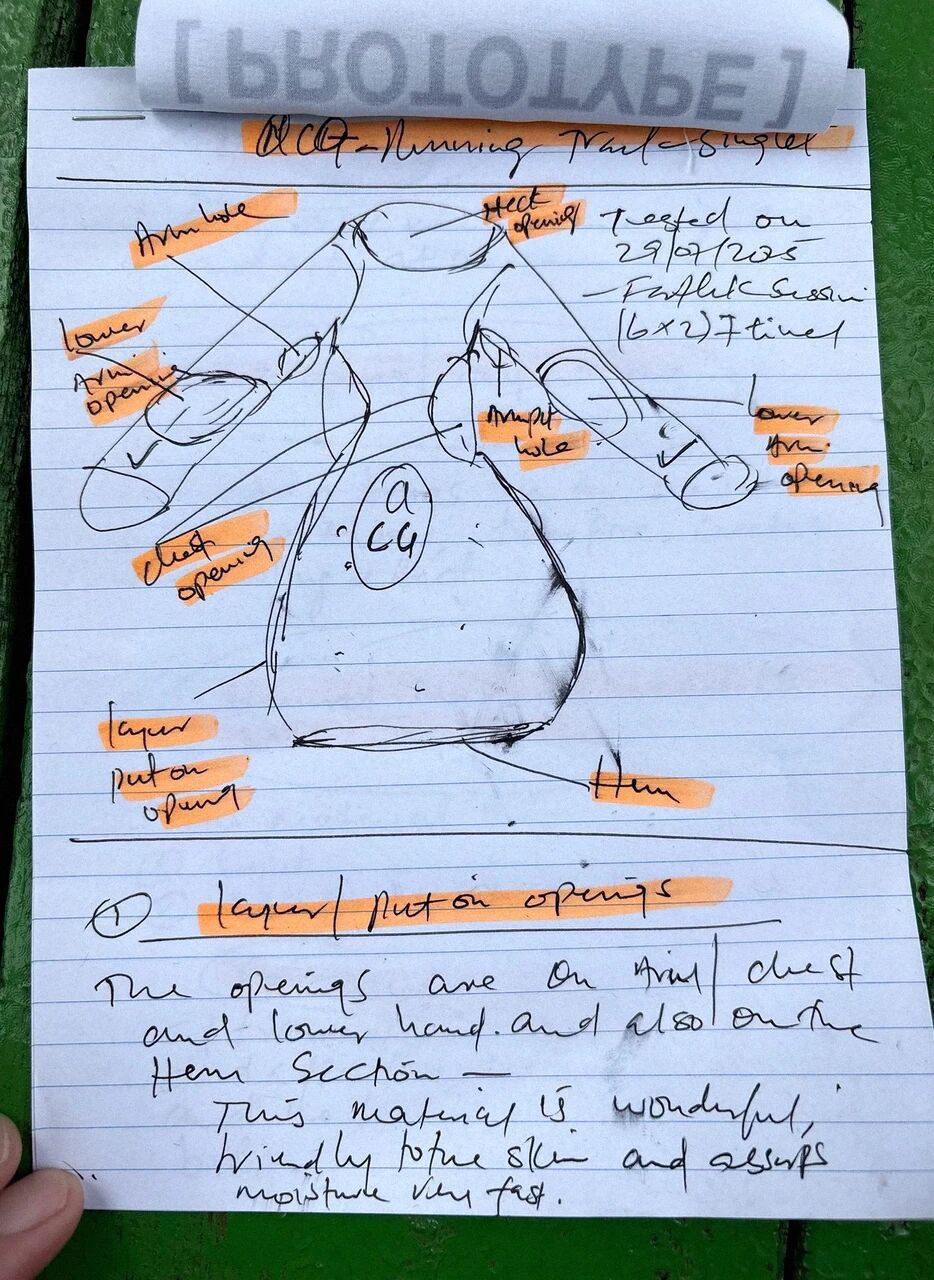 [PROTOTYPE]
Running Trail - Singlet
Arm hole
Neck
opening
Tested on
- Fartlek Session
(6x2) 7 times
Lower
Arm
opening
Armpit
hole
Lower
Arm
opening
a
CG
chest
opening
layer
put on
opening
Hem
1 layer/put on openings
The openings are on Arm/chest
and lower hand. and also on the
Hem Section —
This material is wonderful,
friendly to the skin and
moisture very fast.